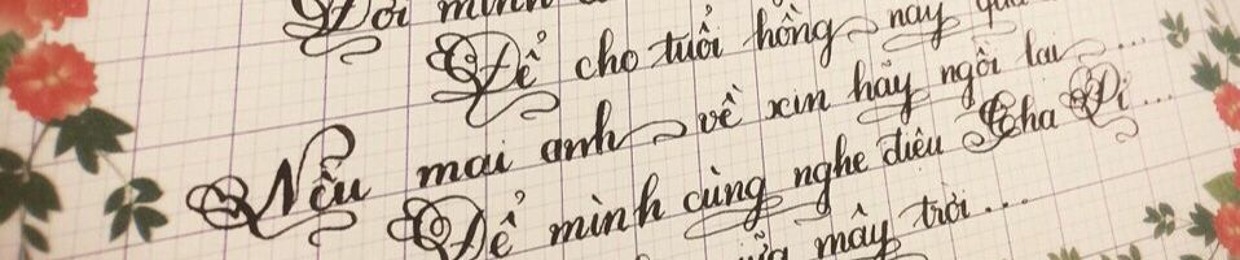 Đợi mình
Để cho tuổi hồng này qua
Nếu mai anh về xin hãy ngồi lại ...
Để mình cùng nghe điệu Cha Đi ...
của mây trời ...